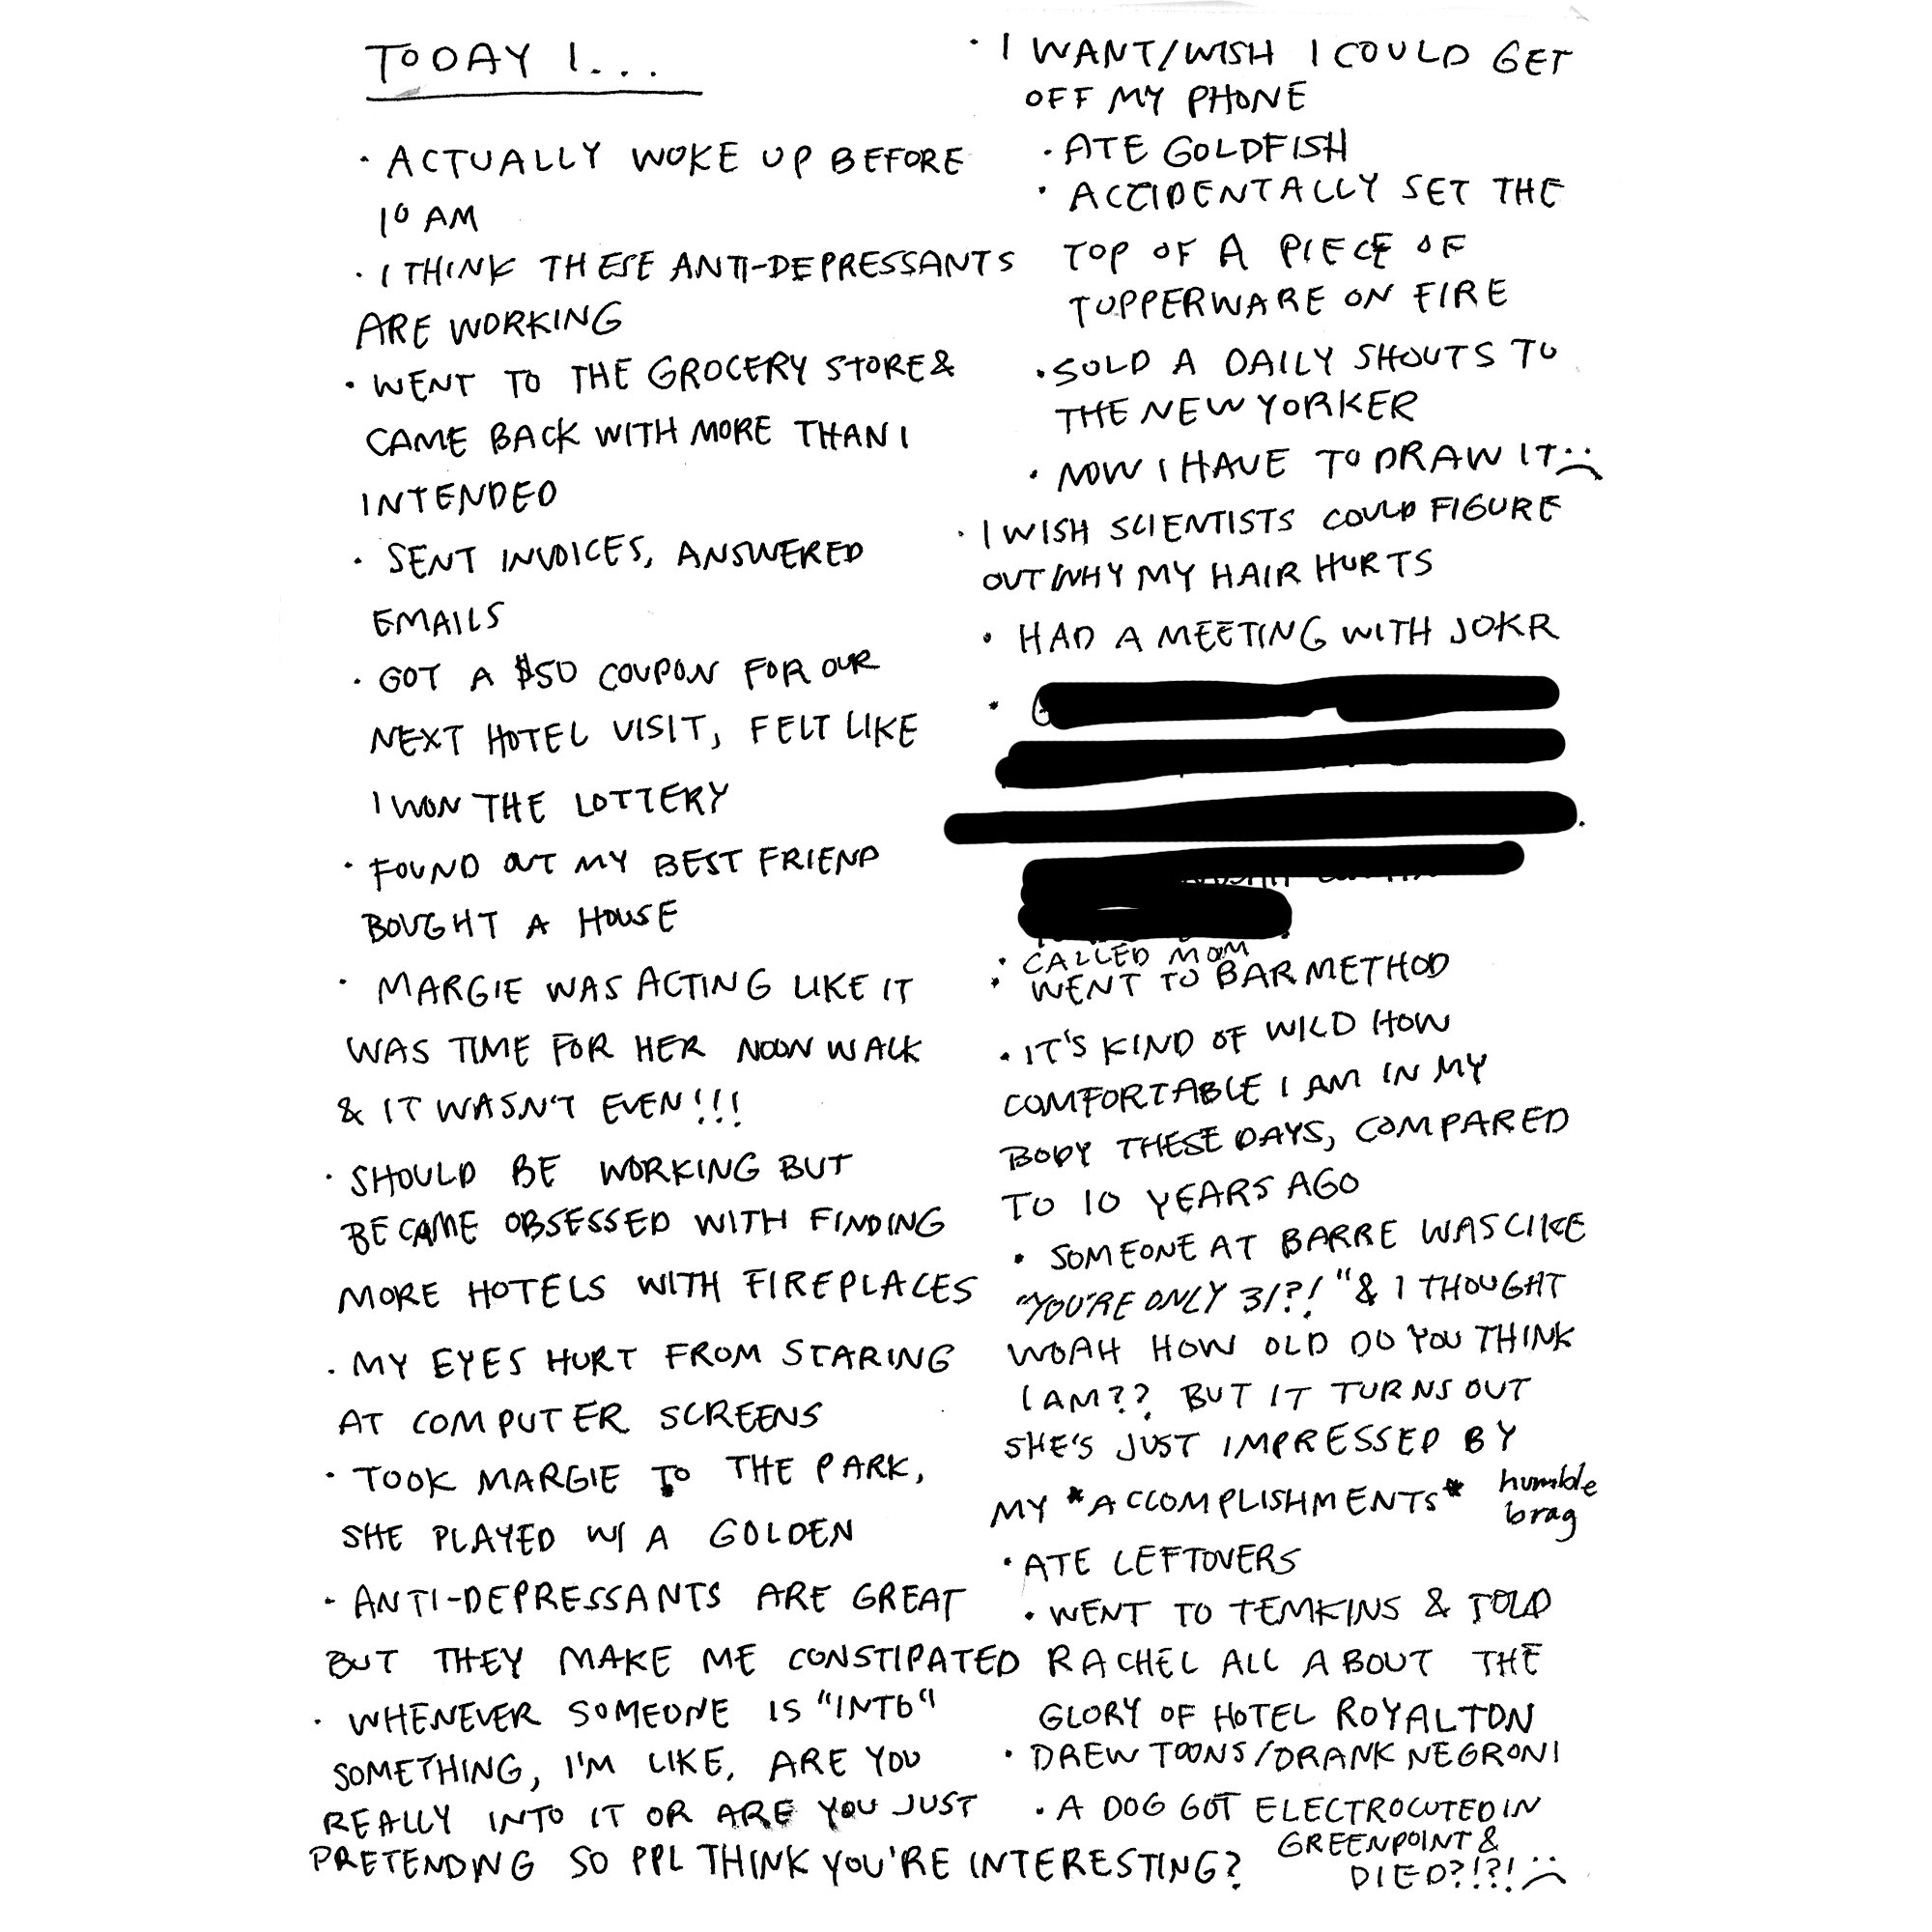 TODAY I...
· ACTUALLY WOKE UP BEFORE
10 AM
· I THINK THESE ANTI-DEPRESSANTS
ARE WORKING
· WENT TO THE GROCERY STORE &
CAME BACK WITH MORE THAN I
INTENDED
· SENT INVOICES, ANSWERED
EMAILS
· GOT A $50 COUPON FOR OUR
NEXT HOTEL VISIT, FELT LIKE
I WON THE LOTTERY
· FOUND OUT MY BEST FRIEND
BOUGHT A HOUSE
· MARGIE WAS ACTING LIKE IT
WAS TIME FOR HER NOON WALK
& IT WASN'T EVEN!!!
· SHOULD BE WORKING BUT
BECAME OBSESSED WITH FINDING
MORE HOTELS WITH FIREPLACES
· MY EYES HURT FROM STARING
AT COMPUTER SCREENS
· TOOK MARGIE TO THE PARK,
SHE PLAYED W/ A GOLDEN
· ANTI-DEPRESSANTS ARE GREAT
BUT THEY MAKE ME CONSTIPATED
· WHENEVER SOMEONE IS "INTO"
SOMETHING, I'M LIKE, ARE YOU
REALLY INTO IT OR ARE YOU JUST
PRETENDING SO PPL THINK YOU'RE INTERESTING?
· I WANT/WISH I COULD GET
OFF MY PHONE
· ATE GOLDFISH
· ACCIDENTALLY SET THE
TOP OF A PIECE OF
TUPPERWARE ON FIRE
· SOLD A DAILY SHOUTS TO
THE NEW YORKER
· NOW I HAVE TO DRAW IT :(
· I WISH SCIENTISTS COULD FIGURE
OUT WHY MY HAIR HURTS
· HAD A MEETING WITH JOKR
· CALLED MOM
· WENT TO BAR METHOD
· IT'S KIND OF WILD HOW
COMFORTABLE I AM IN MY
BODY THESE DAYS, COMPARED
TO 10 YEARS AGO
· SOMEONE AT BARRE WAS LIKE
"YOU'RE ONLY 31?!" & I THOUGHT
WOAH HOW OLD DO YOU THINK
I AM?? BUT IT TURNS OUT
SHE'S JUST IMPRESSED BY
MY *ACCOMPLISHMENTS* humble
brag
· ATE LEFTOVERS
· WENT TO TEMKINS & TOLD
RACHEL ALL ABOUT THE
GLORY OF HOTEL ROYALTON
· DREW TOONS/DRANK NEGRONI
· A DOG GOT ELECTROCUTED IN
GREENPOINT &
DIED?!?! :(